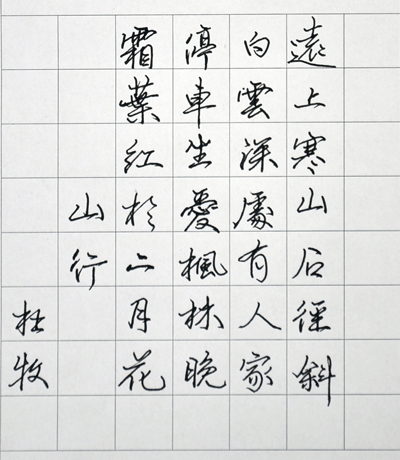 遠上寒山石徑斜
白雲深處有人家
停車坐愛楓林晚
霜葉紅於二月花
山行
杜牧